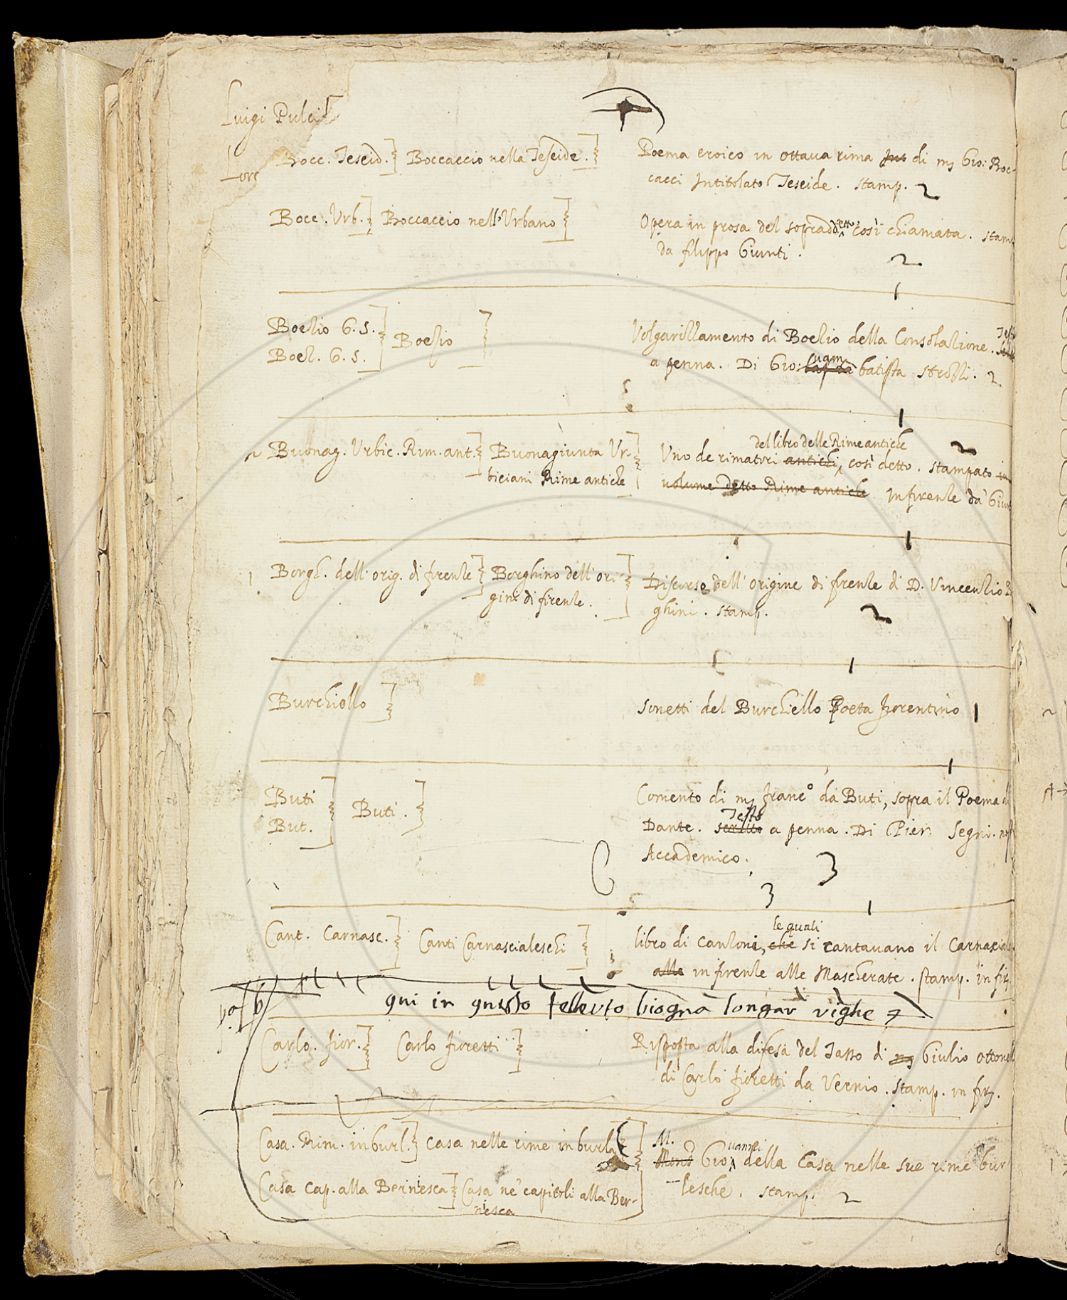 Luigi Pulci
Bocc. Teseid. Boccaccio nella Teseide. Poema eroico in ottaua rima di mg Gio: Boc-
cacci Intitolato Teseide. Stamp. 2
Bocc. Vrb. Boccaccio nell'Vrbano Opera in prosa del sopradd.etto così chiamata. Stam
da filippo Giunti. 2
Boezio G. S. Boezio Volgarizzamento di Boezio della Consolazione. Testo
Boez. G. S. a penna. Di Gio: uam batista Strozzi. 2.
del libro delle Rime antiche
Buonag. Vrbic. Rim. ant. Buonagiunta Vr- Uno de rimatori antichi, così detto. Stampato
biciani Rime antiche volume detto Rime antiche in firenze da Giun
Borgh. dell'orig. di firenze Borghino dell'ori- Discorso dell'origine di firenze di D. Vincenzio
gine di firenze. ghini. Stamp. 2
Burchiello Sonetti del Burchiello Poeta fiorentino
Buti Buti. Comento di mg franc° da Buti, sopra il Poema
But. Dante. Testo a penna. Di Pier Segni.
Accademico. 3
3
le quali
Cant. Carnasc. Canti Carnascialeschi libro di Canzoni, che si cantauano il Carnascial
alle in firenze alle Mascherate. Stamp. in fir
qui in questo bisogna righe
Carlo. fior. Carlo fioretti Risposta alla difesa del Tasso di mg Giulio Ottonel
di Carlo fioretti da Vernio. Stamp. in fir.
Casa. Rim. in burl. Casa nelle rime in burla M. Gio. uanni della Casa nelle sue rime bur
lesche. Stamp. 2
Casa cap. alla Bernesca Casa ne' capitoli alla Ber-
nesca